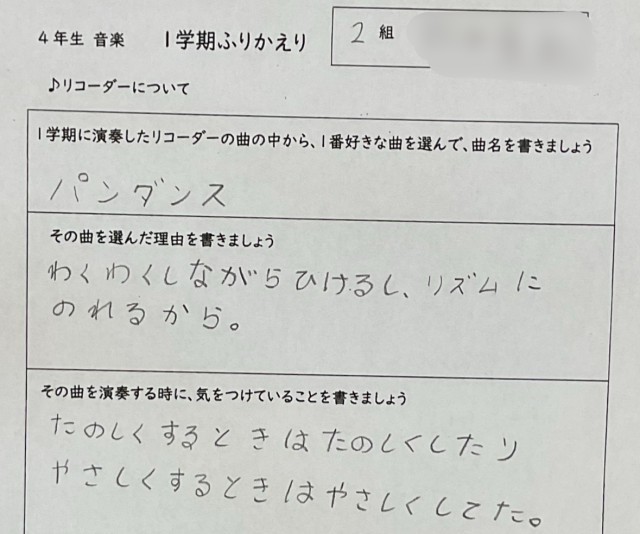 4年生 音楽　1学期ふりかえり　2 組
♪リコーダーについて
1学期に演奏したリコーダーの曲の中から、1番好きな曲を選んで、曲名を書きましょう
パンダンス
その曲を選んだ理由を書きましょう
わくわくしながらひけるし、リズムに
のれるから。
その曲を演奏する時に、気をつけていることを書きましょう
たのしくするときはたのしくしたり
やさしくするときはやさしくしてた。